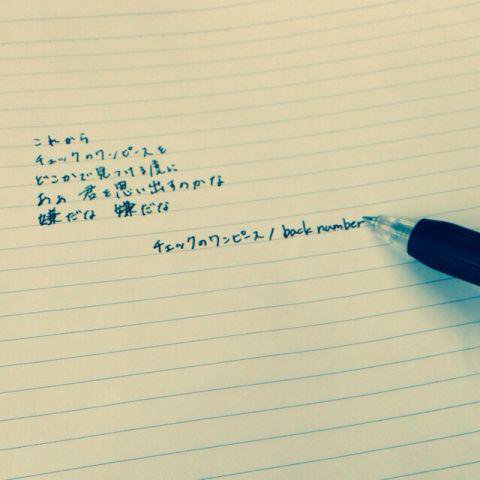 これから
チェックのワンピースを
どこかで見つける度に
あぁ 君を思い出すのかな
嫌だな 嫌だな
チェックのワンピース / back number